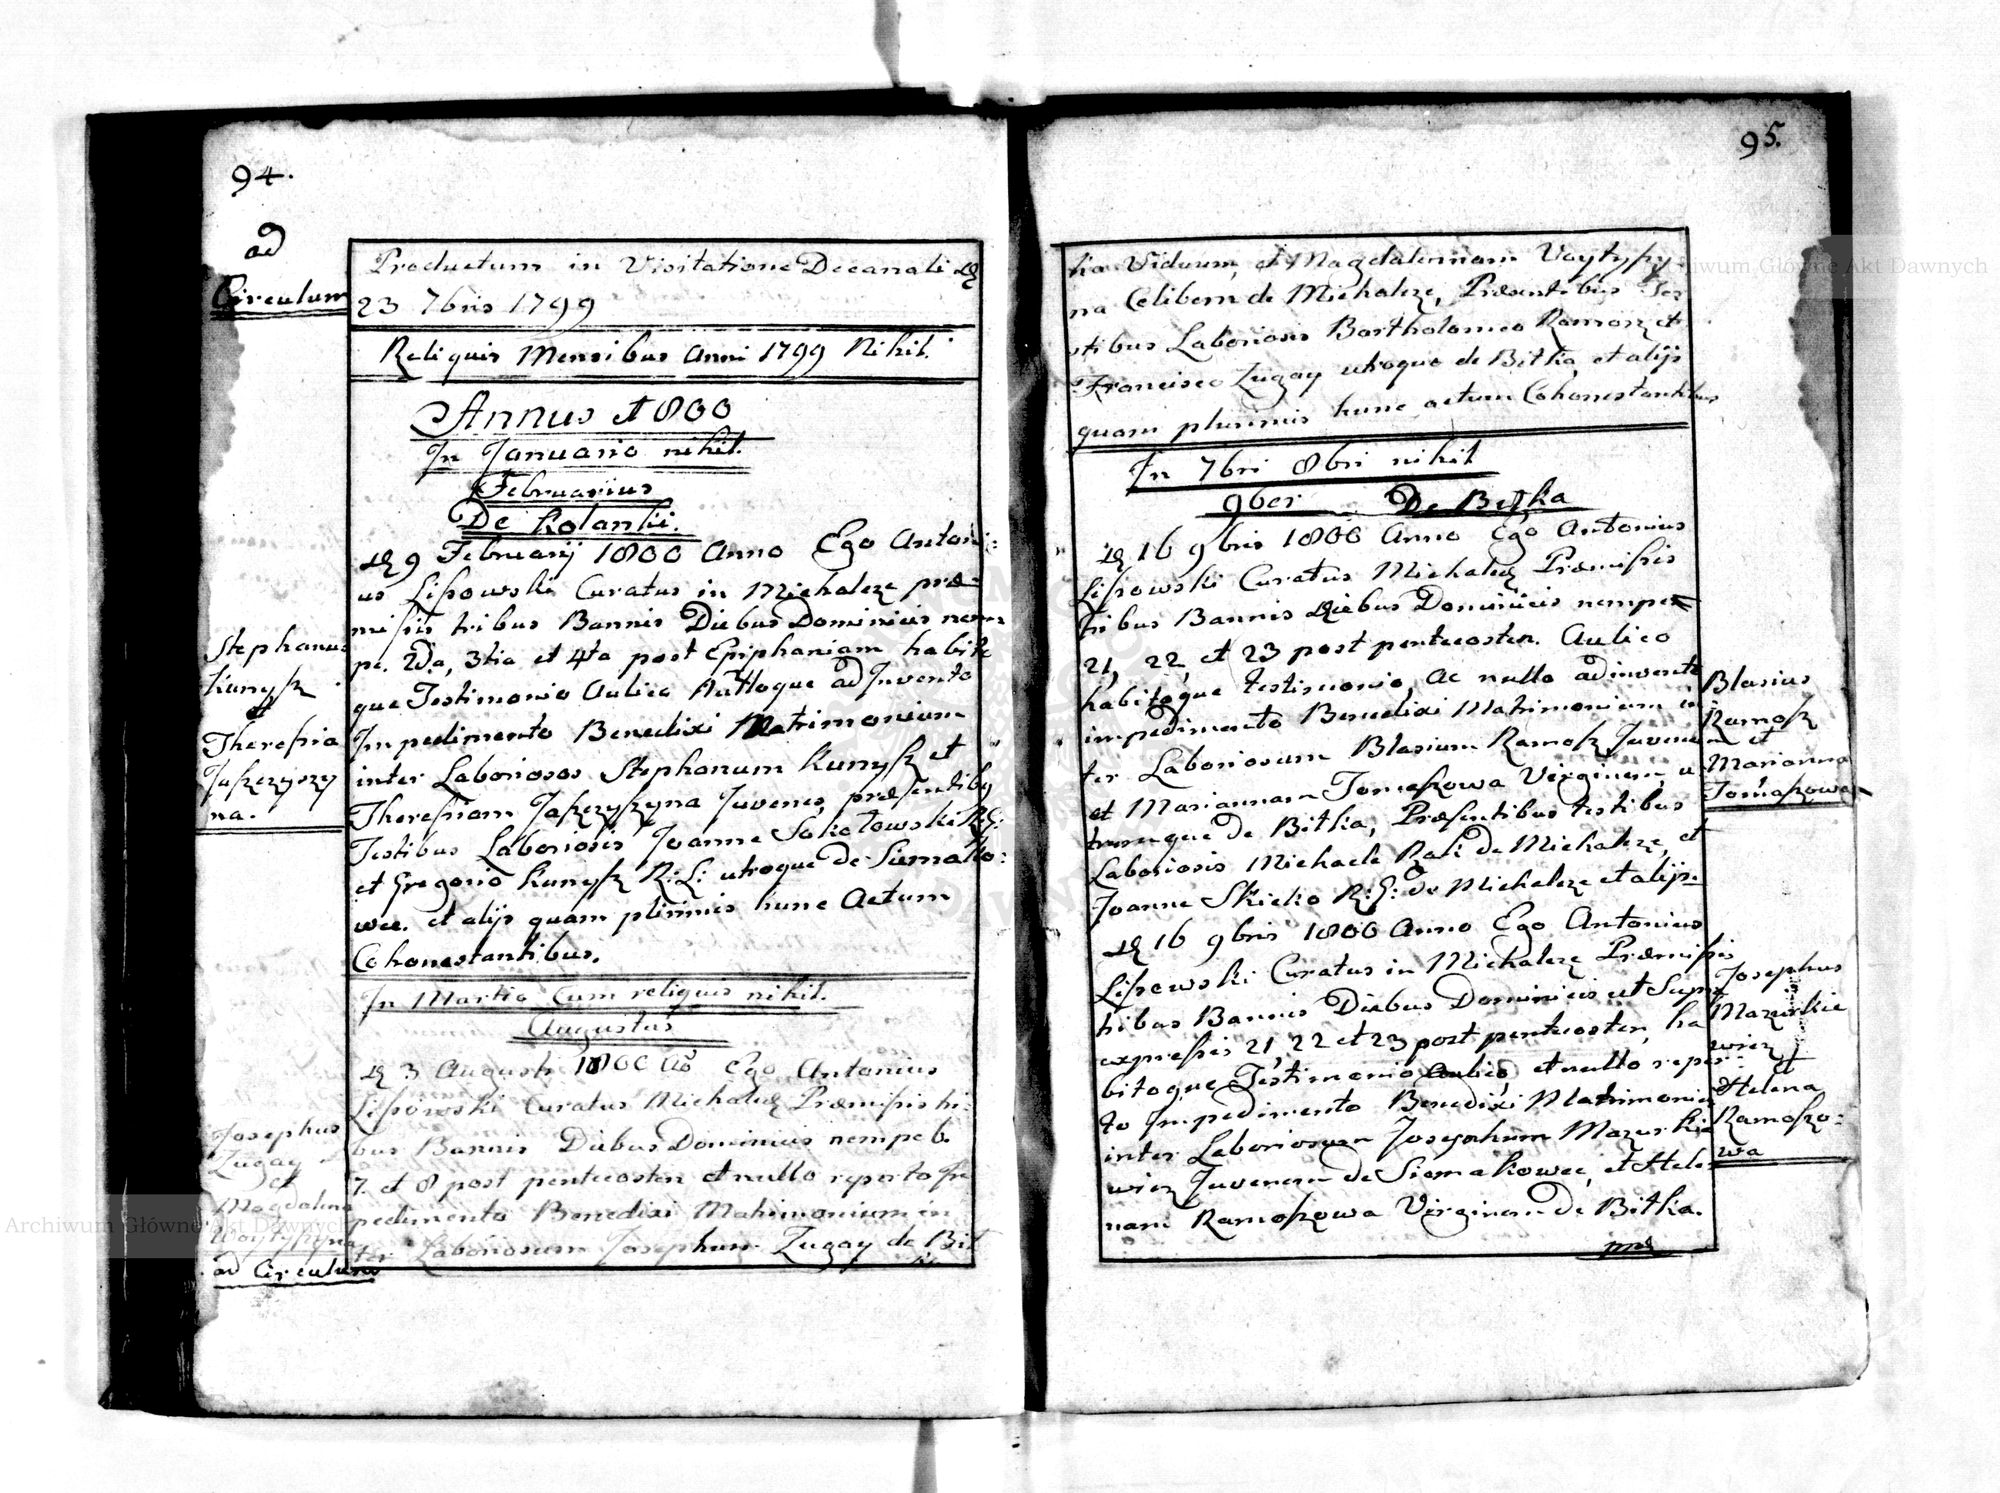 94.
ad
Circulum
Productum in Visitatione Decanali D
23 7bris 1799
Reliquis Mensibus Anni 1799 Nihil.
Annus 1800
In Januario nihil.
Februarius
De Kolanki.
D 9 Februarij 1800 Anno Ego Antoni=
us Lissowski Curatus in Michalcze præ=
missis tribus Bannis Diebus Dominicis nem
pe. 2da, 3tia et 4ta post Epiphaniam habito
que Testimonio Aulico Nulloque ad Invento
Impedimento Benedixi Matrimonium
inter Laboriosos Stephanum Kunysz et
Theressiam Jaszczyszyna Juvenes, præsentibus
Testibus Laboriosis Joanne Sokołowski R:G:
et Gregorio Kunysz R:L: utroque de Siemako=
wce. et alijs quam plirimis hunc Actum
Cohonestantibus.
Stephanus
Kunysz
et
Theressia
Jaszczyszy
na.
In Martio Cum reliquis nihil.
Augustus
D 3 Augusti 1800 Ao Ego Antonius
Lissowski Curatus Michalcz Præmissis tri=
bus Bannis Diebus Dominicis nempe 6.
7. et 8 post pentecosten et nullo reperto Im
pedimento Benedixi Matrimonium in
ter Laboriosum Josephum Zugay de Bit
Josephus
Zugay
et
Magdalena
Woytyszyna
ad Circulum
95.
ka Viduum, et Magdalennam Voytyszy
na Celibem de Michalcze, Præsentibus Tes
stibus Laboriosis Bartholomeo Ramosz et
Francisco Zugay utroque de Bitka, et alijs
quam plurimis hunc actum Cohonestantibus
In 7bri 8bri nihil
9ber De Bitka
D 16 9bris 1800 Anno Ego Antonius
Lissowski Curatus Michalcz Præmissis
tribus Bannis Diebus Dominicis nempe
21, 22, et 23 post pentecosten. Aulico
habitoque testimonio, ac nullo adinvento
impedimento Benedixi Matrimonium in
ter Laboriosum Blasium Ramosz Juvenem
et Mariannam Tomaszowa Virginem, u
trumque de Bitka, Præsentibus testibus
Laboriosis Michaele Rak de Michalcze, et
Joanne Skicko R:G: de Michalcze et alijs.
Blasius
Ramosz
et
Marianna
Tomaszowa
D 16 9bris 1800 Anno Ego Antonius
Lissowski Curatus in Michalcze Præmissis
tribus Bannis Diebus Dominicis ut Supra
expressis 21, 22 et 23 post pentecosten, ha
bitoque Testimonio Aulico, et nullo reper=
to Impedimento Benedixi Matrimonium
inter Laboriosum Josephum Mazurkie
wicz Juvenem de Siemakowce, et Hele
nam Ramoszowa Virginem De Bitka.
Josephus
Mazurkie
wicz
et
Helena
Ramoszo=
wa
Archiwum Główne Akt Dawnych
Archiwum Główne Akt Dawnych